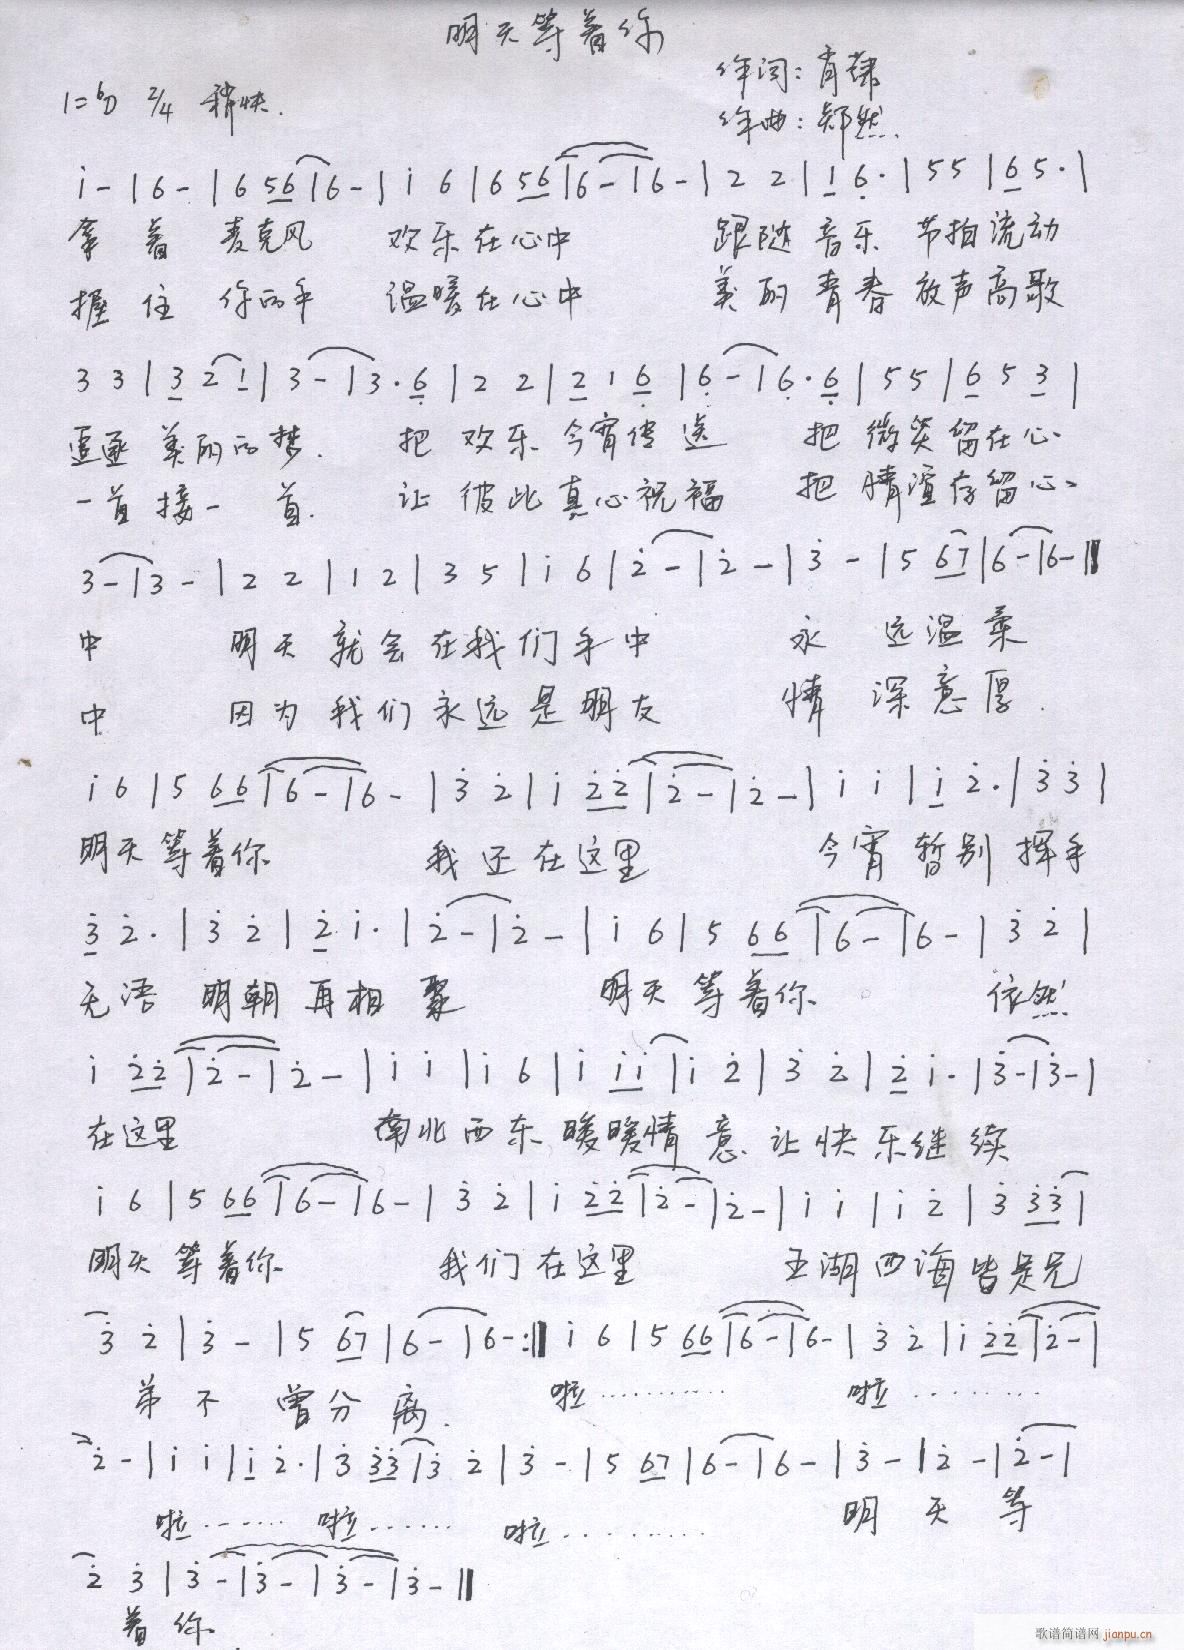 明天等着你
作词：肖肆
1=ᵇD 2/4 稍快.
作曲：郑然
i - | 6 - | 6 56 | 6 - | i 6 | 6 56 | 6 - | 6 - | 2 2 | 1 6· | 5 5 | 6 5· |
拿着 麦克风 欢乐在心中 跟随音乐 节拍流动
握住 你的手 温暖在心中 美丽青春 放声高歌
3 3 | 3 2 1 | 3 - | 3· 6 | 2 2 | 2 1 6 | 6 - | 6· 6 | 5 5 | 6 5 3 |
追逐美丽的梦. 把欢乐今宵传送 把微笑留在心
一首接一首. 让彼此真心祝福 把情谊存留心
3 - | 3 - | 2 2 | 1 2 | 3 5 | i 6 | 2 - | 2 - | 3 - | 5 67 | 6 - | 6 - ‖
中 明天就会在我们手中 永远温柔
中 因为我们永远是朋友 情深意厚.
i 6 | 5 66 | 6 - | 6 - | 3 2 | i 22 | 2 - | 2 - | i i | i 2· | 3 3 |
明天等着你 我还在这里 今宵暂别 挥手
3 2· | 3 2 | 2 i· | 2 - | 2 - | i 6 | 5 66 | 6 - | 6 - | 3 2 |
无语 明朝再相聚 明天等着你 依然
i 22 | 2 - | 2 - | i i | i 6 | i ii | i 2 | 3 2 | 2 i· | 3 - | 3 - |
在这里 南北西东 暖暖情意 让快乐继续
i 6 | 5 66 | 6 - | 6 - | 3 2 | i 22 | 2 - | 2 - | i i | i 2 | 3 33 |
明天等着你 我们在这里 五湖四海皆是兄
3 2 | 3 - | 5 67 | 6 - | 6 - :‖ i 6 | 5 66 | 6 - | 6 - | 3 2 | i 22 | 2 - |
弟不曾分离. 啦………… 啦…………
2 - | i i | i 2· | 3 33 | 3 2 | 3 - | 5 67 | 6 - | 6 - | 3 - | 2 - | 2 - |
啦…… 啦…… 啦………… 明天等
2 3 | 3 - | 3 - | 3 - | 3 - ‖
着你.
歌谱简谱网 jianpu.cn